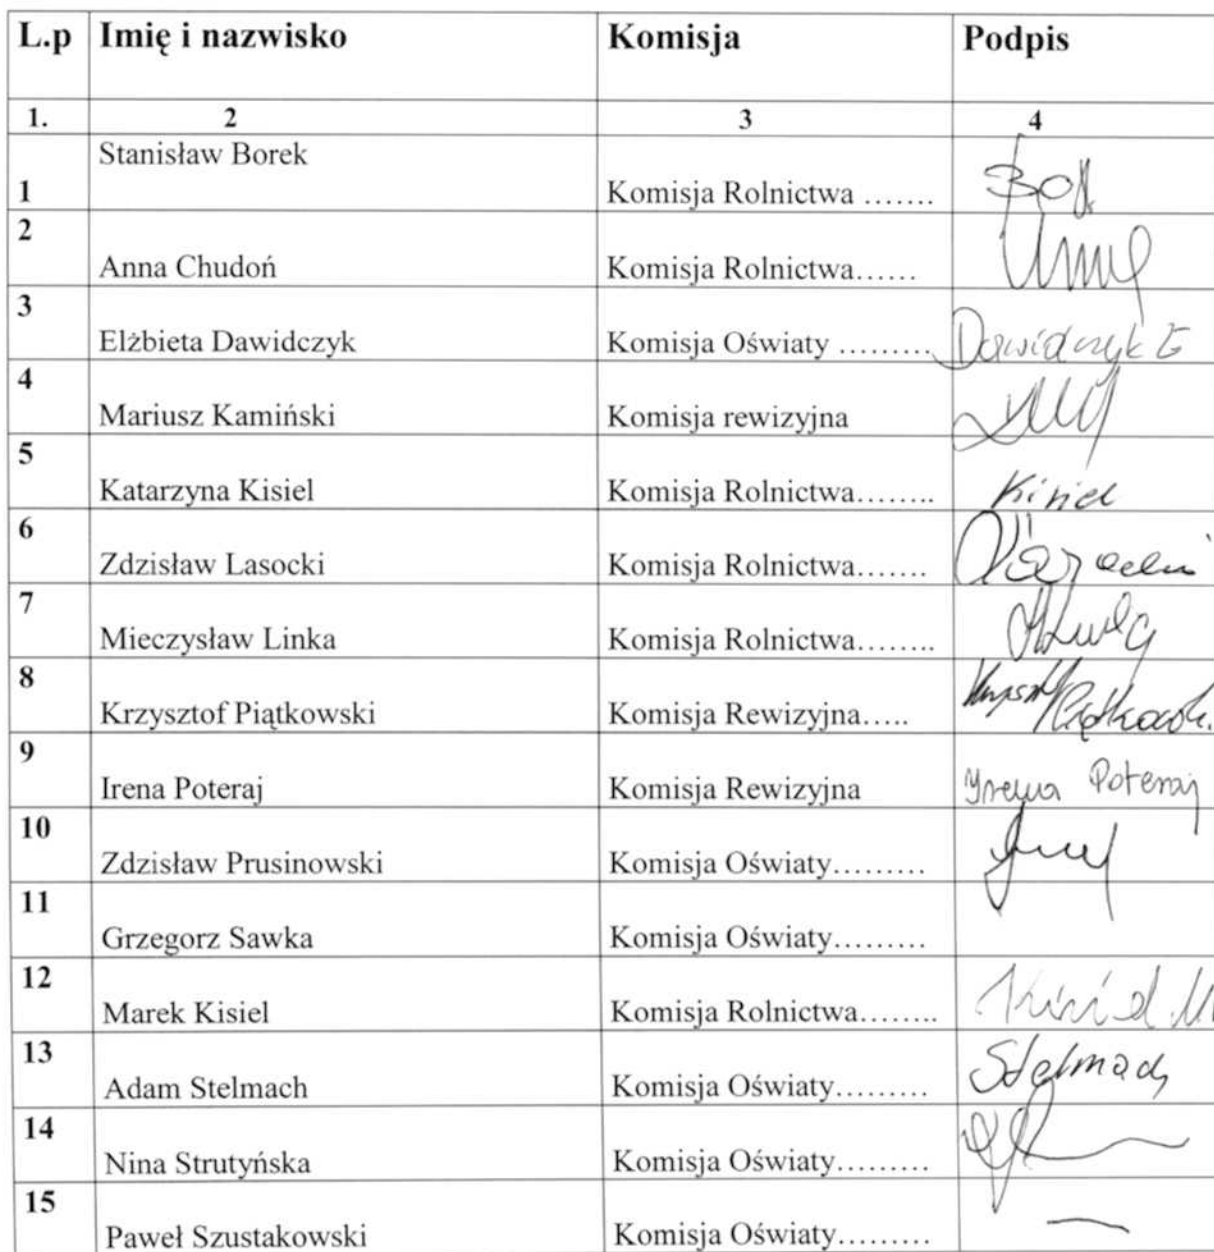 L.p Imię i nazwisko Komisja Podpis
1. 2 3 4
Stanisław Borek
1 Komisja Rolnictwa …….
2
Anna Chudoń Komisja Rolnictwa……
3
Elżbieta Dawidczyk Komisja Oświaty ……… Dawidczyk E
4
Mariusz Kamiński Komisja rewizyjna
5
Katarzyna Kisiel Komisja Rolnictwa…….. Kisiel
6
Zdzisław Lasocki Komisja Rolnictwa…….
7
Mieczysław Linka Komisja Rolnictwa……..
8
Krzysztof Piątkowski Komisja Rewizyjna….. Piątkowski
9
Irena Poteraj Komisja Rewizyjna Irena Poteraj
10
Zdzisław Prusinowski Komisja Oświaty………
11
Grzegorz Sawka Komisja Oświaty………
12
Marek Kisiel Komisja Rolnictwa…….. Kisiel M
13
Adam Stelmach Komisja Oświaty……… Stelmach
14
Nina Strutyńska Komisja Oświaty………
15
Paweł Szustakowski Komisja Oświaty………